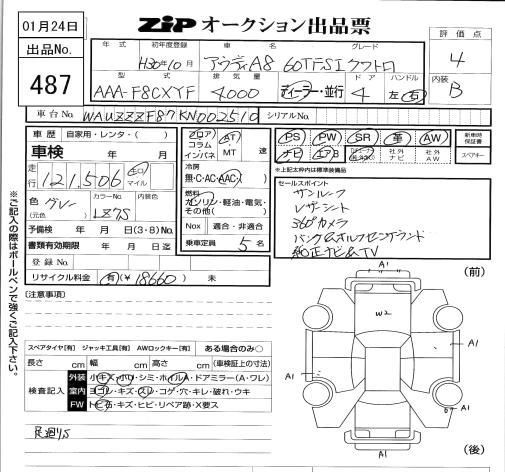 01月24日
ZIP オークション出品票
出品No.
487
年式 初年度登録 車名 グレード
H30年10月 アウディA8 60TFSI クワトロ
型式 排気量 ドア ハンドル
AAA-F8CXYF 4000 ディーラー・並行 4 左・右
評価点
4
内装
B
車台No. WAUZZZF87KN002510 シリアルNo.
車歴 自家用・レンタ・( )
車検 年 月
走行 121,506 キロ マイル
色 グレー (元色) カラーNo. LZ7S 内装色
予備検 年 月 日(3・8)Mo
書類有効期限 年 月 日迄
登録No.
リサイクル料金 有(¥18660) 未
フロア コラム インパネ AT・MT 速
冷房
無・C・AC・AAC
燃料
ガソリン・軽油・電気・その他( )
Nox 適合・非適合
乗車定員 5 名
PS PW SR 革 AW
ナビ エアB 社外ナビ 社外AW
新車時保証書
スペアキー
*上記太枠内は標準装備品
セールスポイント
サンルーフ
レザーシート
360°カメラ
純正ナビ&TV
※ご記入の際はボールペンで強くご記入下さい。
[注意事項]
スペアタイヤ[有] ジャッキ工具[有] AWロックキー[有] ある場合のみ〇
長さ cm 幅 cm 高さ cm (車検証上の寸法)
検査記入
外装 小キズ・小凹・シミ・ホイルA・ドアミラー(A・ワレ)
室内 ヨゴレ・キズ・スレ・コゲ・穴・キレ・破れ・ウキ
FW トビ石・キズ・ヒビ・リペア跡・X要ス
足廻りS
(前)
A1
W2
A1
A1
A1
A1
(後)